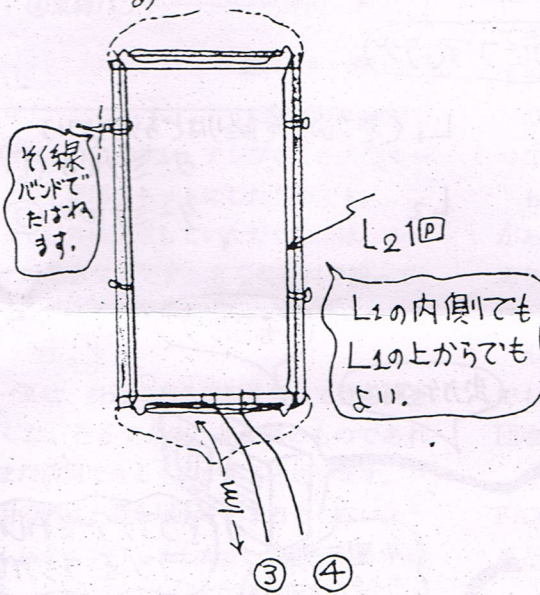 そく線
バンドで
たばね
ます。
L2 1回
L1の内側でも
L1の上からでも
よい.
③ ④